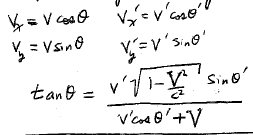 Vx = V cosθ    Vx' = V' cosθ'
Vy = V sinθ    Vy' = V' sinθ'
tanθ = V' √(1 - V²/c²) sinθ' / (V' cosθ' + V)